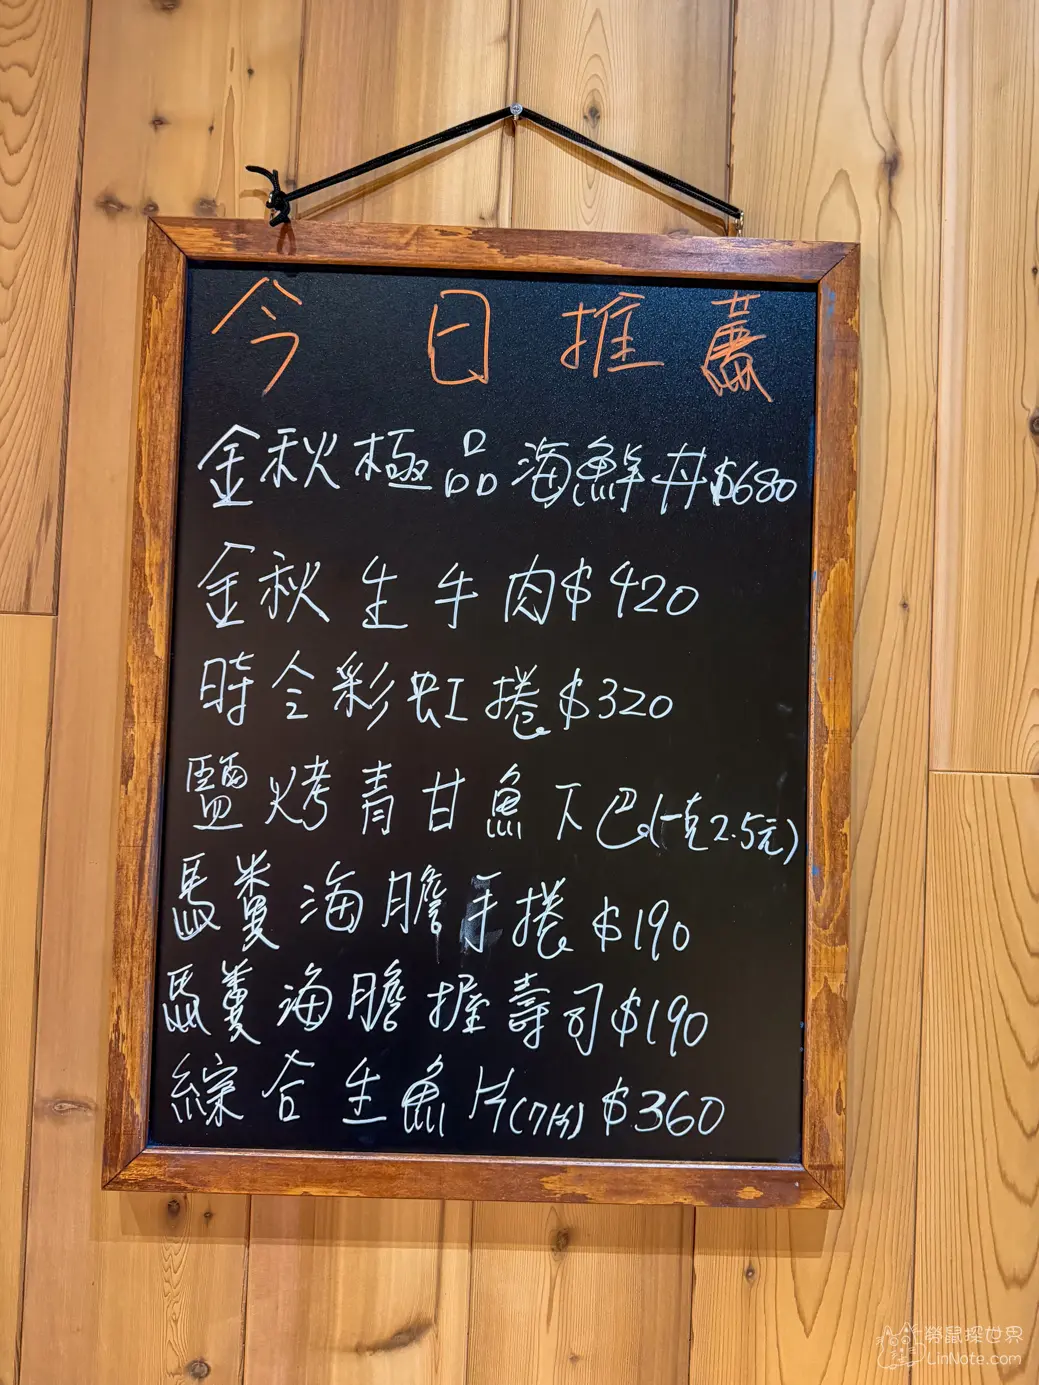 今日推薦
金秋極品海鮮丼$680
金秋生牛肉$420
時令彩虹捲$320
鹽烤青甘魚下巴(一克2.5元)
馬糞海膽手捲$190
馬糞海膽握壽司$190
綜合生魚片(7片)$360
勞鼠探世界
LinNote.com